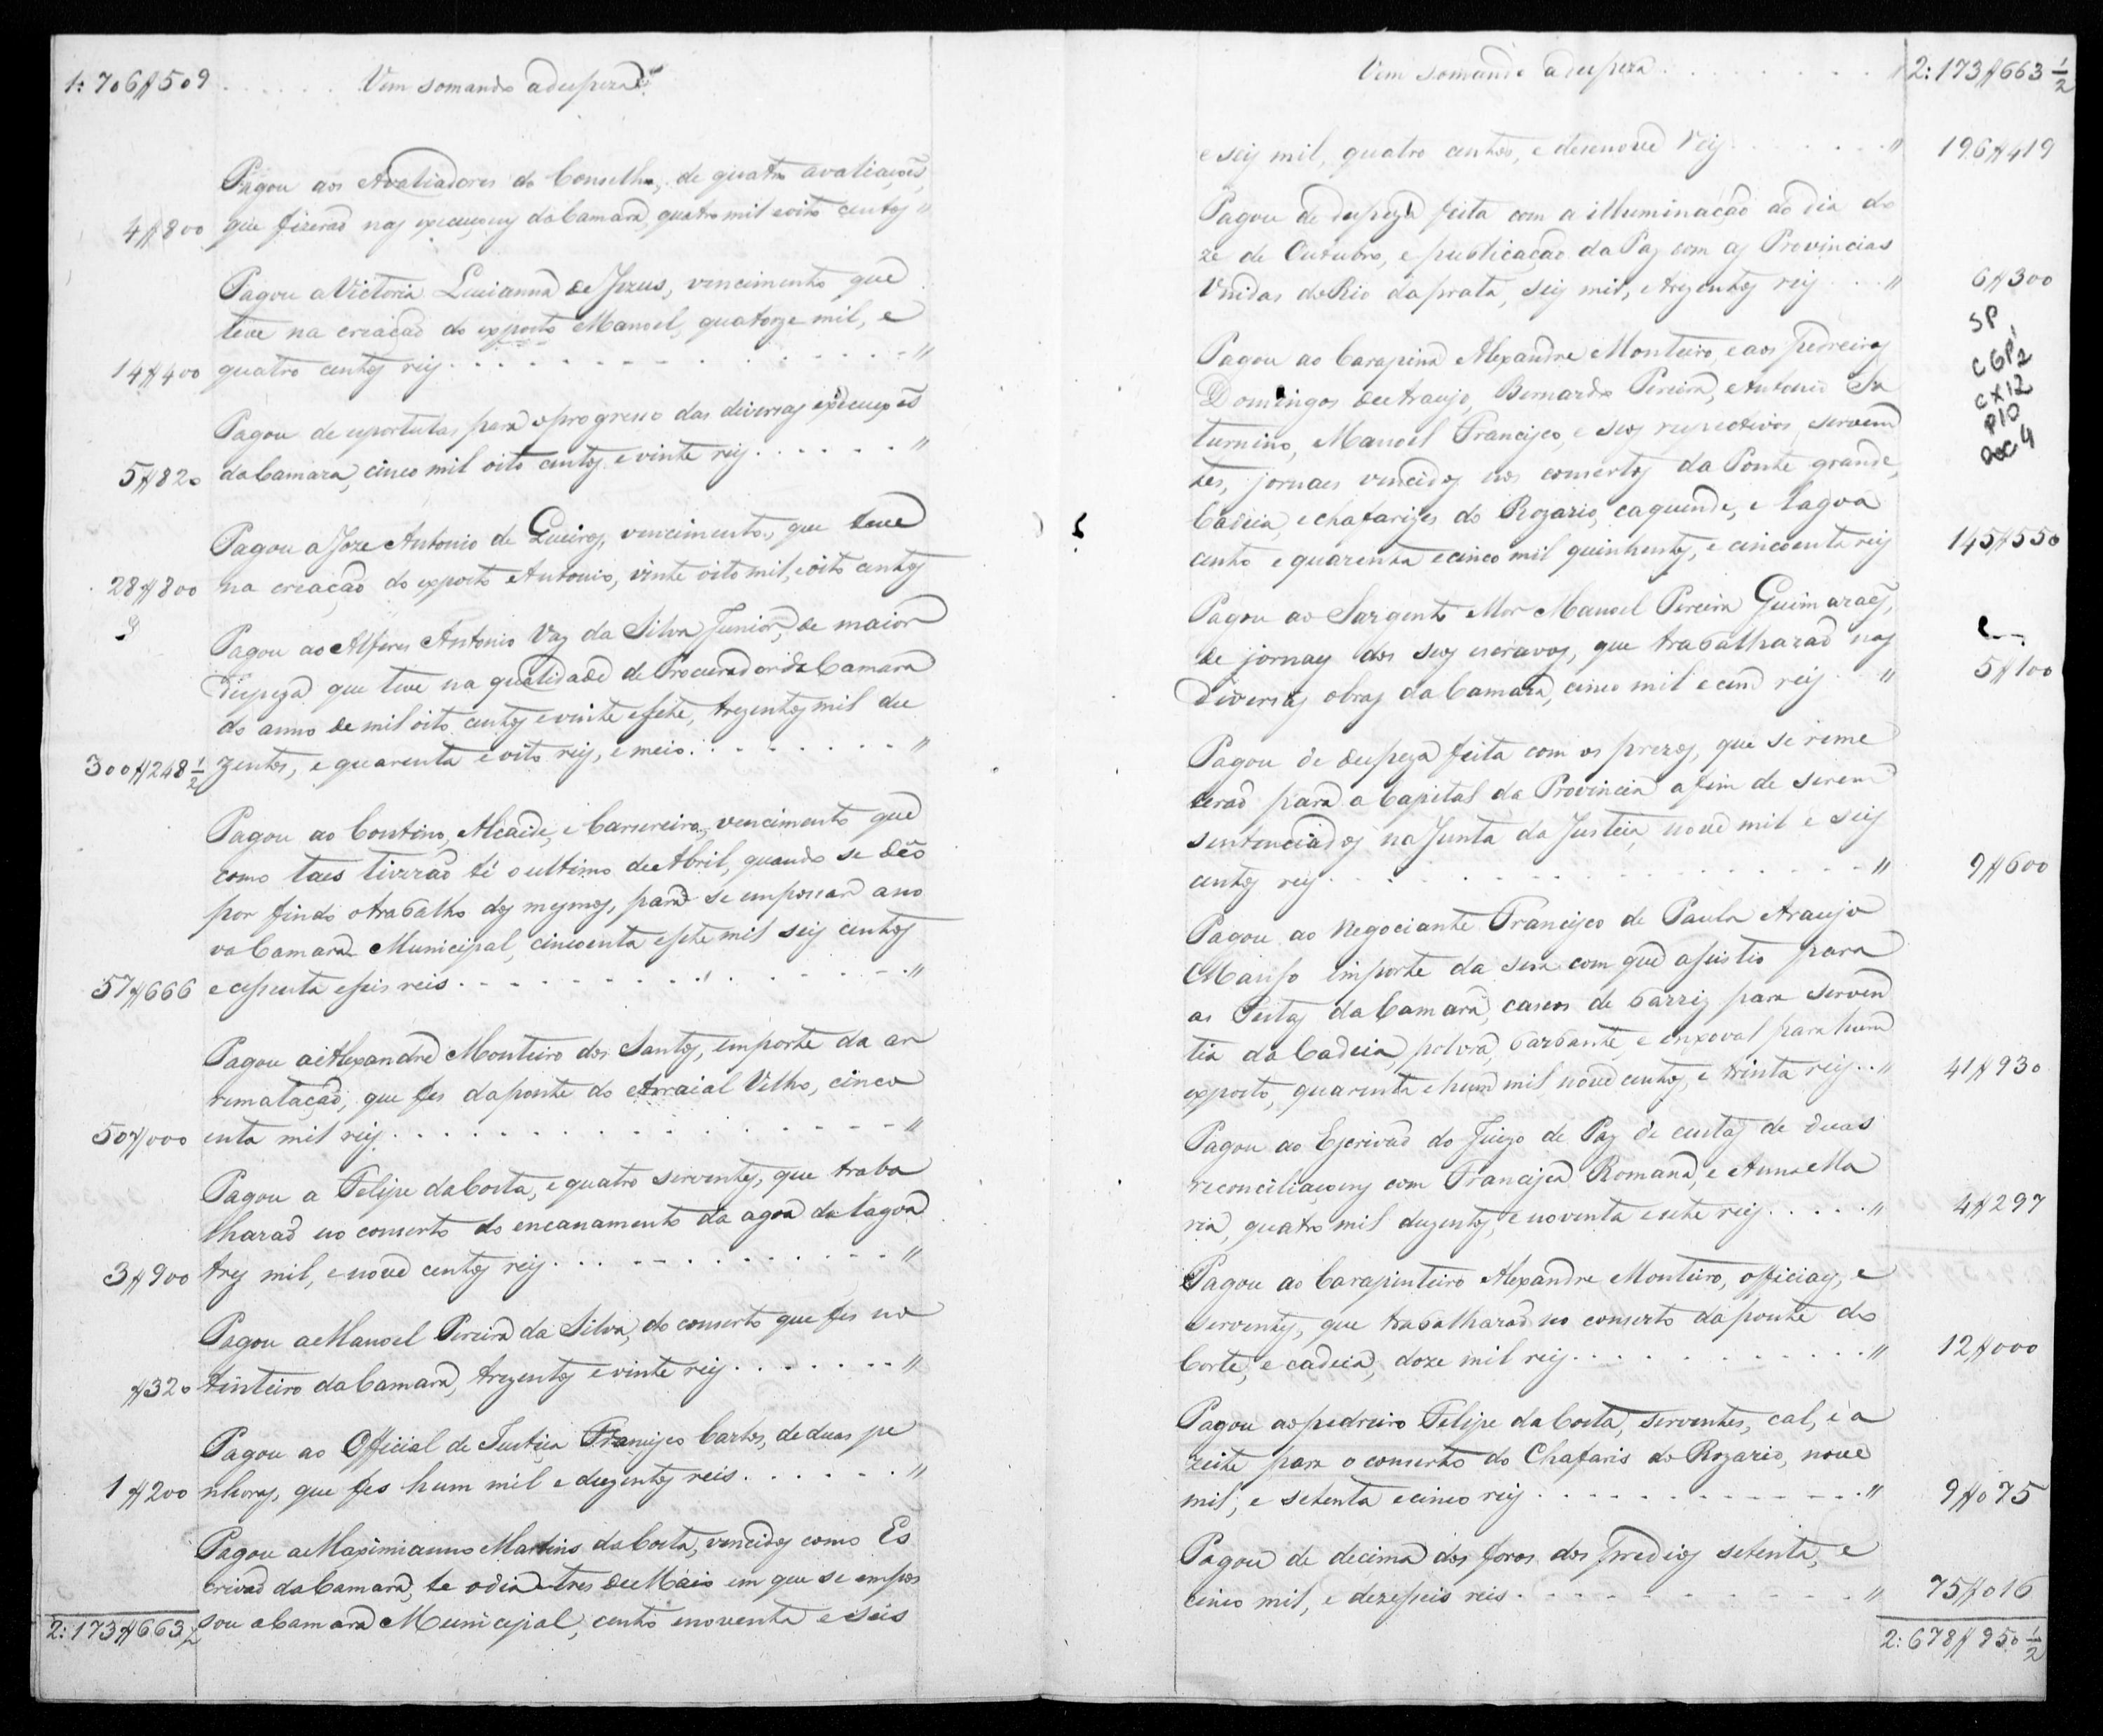 1:706$509 . . . . . . Vem somando adespeza
Pagou aos Avaliadores do Conselho, de quatro avaliaçoẽs,
4$800 que fizeraõ nas execuçoens da Camara, quatro mil eoito centos "
Pagou aVictoria Lucianna de Jezus, vencimento que
teve na creaçaõ do exposto Manoel, quatorze mil, e
14$400 quatro centos reis . . . . . . . . "
Pagou de esportulas para oprogresso das diversas execuçoẽs
5$820 daCamara, cinco mil oito centos evinte reis . . . . . . "
Pagou aJoze Antonio de Queiros, vencimento, que teve
28$800 na creaçaõ do exposto Antonio, vinte oito mil, eoito centos
Pagou ao Alferes Antonio Vaz da Silva Junior, de maior
despeza que teve na qualidade de Procurador da Camara
do anno de mil oito centos evinte esete, trezentos mil du
300$248 1/2 zentos, e quarenta eoito reis, e meio . . . . . . . "
Pagou ao Contino, Alcaide, e Carsereiro, vencimento que
como taes tiverão té o ultimo de Abril, quando se deo
por findo otrabalho dos mesmos, para se empossar ano
va Camara Municipal, cincoenta esete mil seis centos
57$666 e cessenta eseis reis . . . . . . . . "
Pagou a Alexandre Monteiro dos Santos, emporte da ar
remataçaõ, que fes daponte do Arraial Velho, cinco
50$000 enta mil reis . . . . . . . . "
Pagou a Felipe daCosta, e quatro serventes, que traba
lharaõ no conserto do encanamento da agoa da lagoa
3$900 tres mil, e nove centos reis . . . . . . . . "
Pagou aManoel Pereira da Silva, do conserto que fes no
$320 tinteiro daCamara, trezentos evinte reis . . . . . . . "
Pagou ao Official de Justiça Francisco Carlos, de duas pe
1$200 nhoras, que fes hum mil e duzentos reis . . . . . . "
Pagou aMaximianno Martins daCosta, vencidos como Es
crivaõ daCamara, te odia tres deMaio em que se empos
2:173$663 1/2 sou aCamara Municipal, cento enoventa e seis
Vem somando adespeza . . . . . . . . 2:173$663 1/2
e seis mil, quatro centos, e dezenove reis . . . . . . " 196$419
Pagou de despeza feita com a illuminação do dia do
ze de Outubro, e publicaçaõ da Paz com as Provincias
Unidas do Rio daprata, seis mil, etrezentos reis . . " 6$300
SP
CGP2
CX12
P10
DOC 4
Pagou ao Carapina Alexandre Monteiro, eaos Pedreiros
Domingos deAraujo, Bernardo Pereira, Antonio Sa
turnino, Manoel Francisco, e seos respectivos serven
tes, jornaes vencidos nos consertos da Ponte grande,
Cadeia, echafarizes do Rozario, caquende, e lagoa
cento e quarenta ecinco mil quinhentos, e cincoenta reis 145$550
Pagou ao Sargento Mor Manoel Pereira Guimaraẽs,
de jornaes dos seos escravos, que trabalharaõ nas
diversas obras daCamara, cinco mil ecem reis . . " 5$100
Pagou de despeza feita com os prezos, que se reme
teraõ para a Capital da Provincia afim de serem
sentenciados naJunta da Justeia, nove mil e seis
centos reis . . . . . . . . " 9$600
Pagou ao Negociante Francisco de Paula Araujo
Manso importe da sera com que asistio para
as Festas daCamara, cascos de barris para serven
tia daCadeia, polvra, barbante, e enxoval para hum
exposto, quarenta ehum mil, nove centos, e trinta reis . . " 41$930
Pagou ao Escrivaõ do Juizo de Paz de custas de duas
reconciliaçoens com Francisca Romana, e AnnaMa
ria, quatro mil duzentos, e noventa esete reis . . . . . " 4$297
Pagou ao Carapinteiro Alexandre Monteiro, officiaes, e
serventes, que trabalharaõ no conserto daponte do
Corte, e cadeia, doze mil reis . . . . . . . . " 12$000
Pagou aopedreiro Felipe daCosta, serventes, cal, e a
zeite para o conserto do Chafaris do Rozario, nove
mil, e setenta ecinco reis . . . . . . . . " 9$075
Pagou de decima dos foros dos predios setenta, e
cinco mil, e dezeseis reis . . . . . . . . " 75$016
2:678$950 1/2